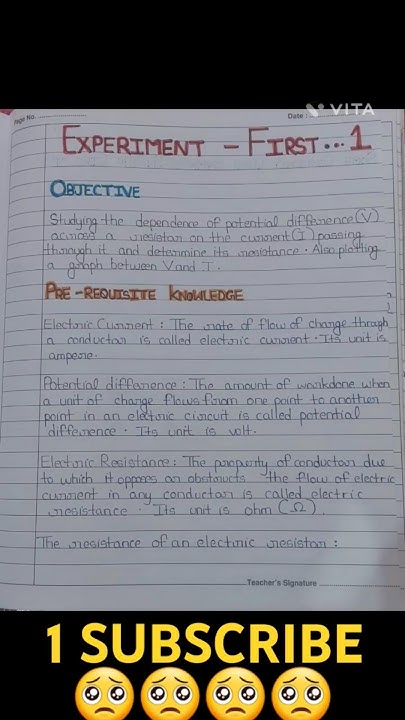 VITA
Page No.
Date :
EXPERIMENT - FIRST... 1
OBJECTIVE
Studying the dependence of potential difference (V)
across a resistor on the current (I) passing
through it and determine its resistance. Also plotting
a graph between V and I.
PRE-REQUISITE KNOWLEDGE
Electric Current : The rate of flow of charge through
a conductor is called electric current. Its unit is
ampere.
Potential difference : The amount of workdone when
a unit of charge flows from one point to another
point in an electric circuit is called potential
difference. Its unit is volt.
Electric Resistance : The property of conductor due
to which it opposes or obstructs the flow of electric
current in any conductor is called electric
resistance. Its unit is ohm (Ω).
The resistance of an electric resistor :
Teacher's Signature
1 SUBSCRIBE